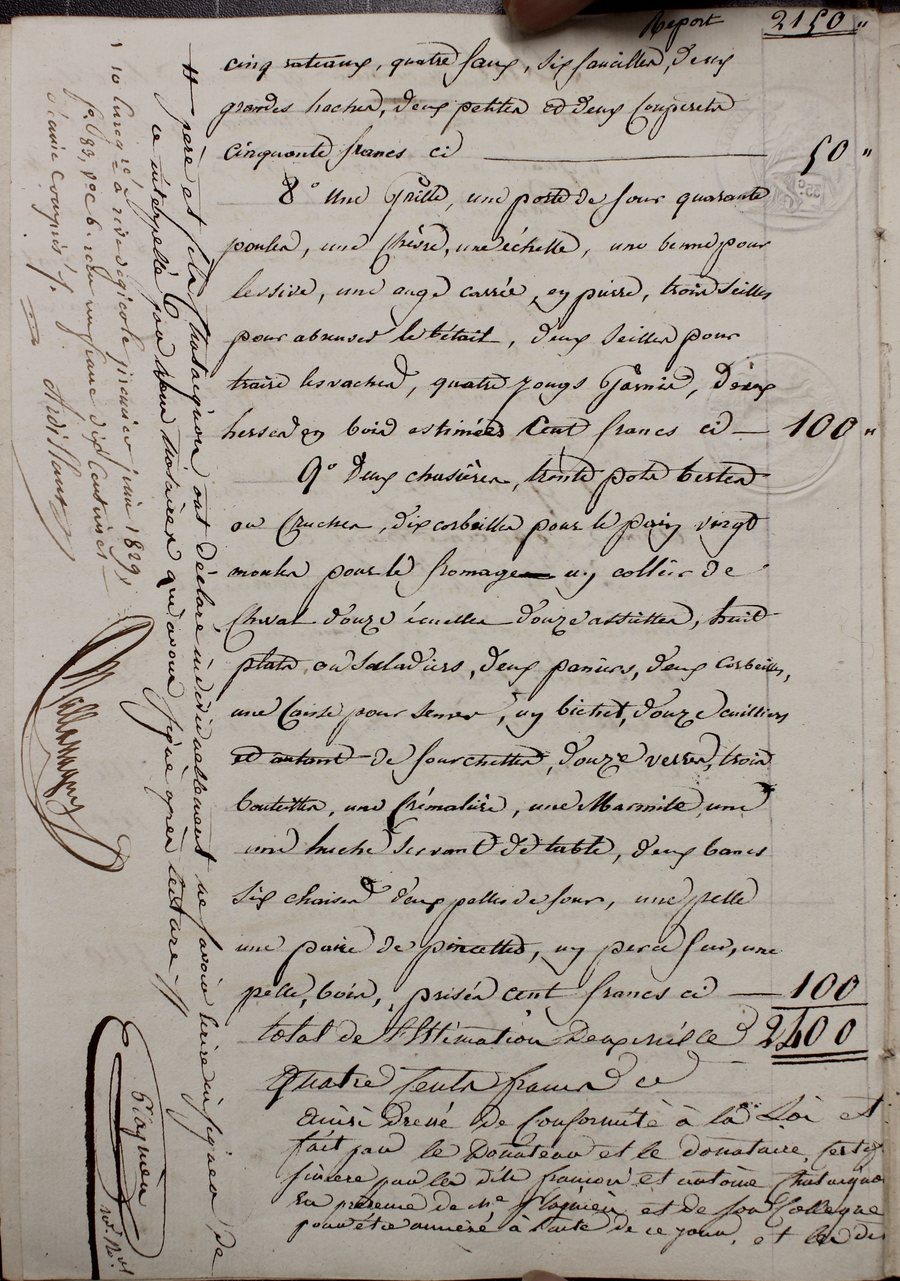 Report 2150 "
cinq rateaux, quatre faux, six faucilles, deux
grandes haches, deux petites et deux Couperets
cinquante francs ci 50 "
8° Une Grille, une porte de four quarante
poules, une Chèvre, une échelle, une benne pour
lessive, une auge carrée, en pierre, trois seilles
pour abreuver le bétail, deux seilles pour
traire les vaches, quatre jougs Garnis, deux
herses en bois estimées Cent francs ci 100 "
9° Deux chasières, trente pots bertes
ou Cruches, dix corbeilles pour le pain vingt
moules pour le fromage un collier de
Cheval douze écuelles douze assiettes, huit
plats ou Saladiers, deux paniers, deux corbeilles,
une Caisse pour semer, un bichet, douze cuilliers
et autant de fourchettes, douze verres, trois
bouteilles, une Crémalière, une Marmite, une
huche servant de table, deux bancs
six chaises deux pelles de four, une pelle
une paire de pincettes, un perce, une
pelle, bois, prisés cent francs ci 100
total de l'Estimation Deux mille 2400
Quatre Cents francs ci
ainsi Dressé de Conformité à la Loi et
fait par le Donateur et le donataire, certifié
sincère par les dits françois et antoine
En présence de Me Plagnieu et de son Collègue
pour être annexé à l'acte de ce jour, et les dits
père et fils ont déclaré individuellement ne savoir écrire ni signer de
ce interpellés par nous Notaires qui avons signé après lecture
juin 1829,
reçu un franc dix Centimes
dixième compris
Plagnieu